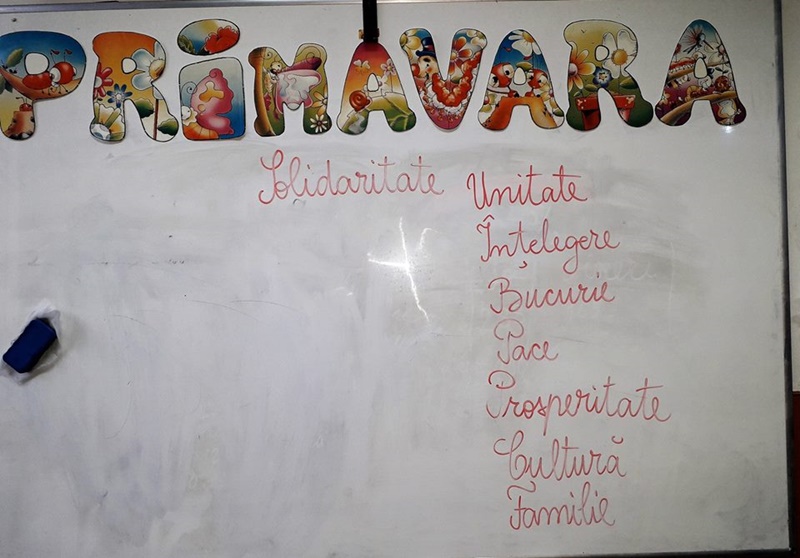 PRiMAVARA
Solidaritate Unitate
Înțelegere
Bucurie
Pace
Prosperitate
Cultură
Familie